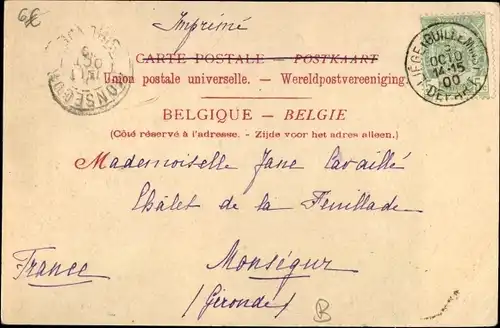 6€
Imprimé
CARTE POSTALE - POSTKAART
Union postale universelle. - Wereldpostvereeniging.
BELGIQUE - BELGIE
(Côté réservé à l'adresse. - Zijde voor het adres alleen.)
LIÉGE (GUILLEMINS)
OCTO
00
DÉPART
Mademoiselle Jane Cavaillé
Châlet de la Feuillade
France
Monségur
(Gironde)
R